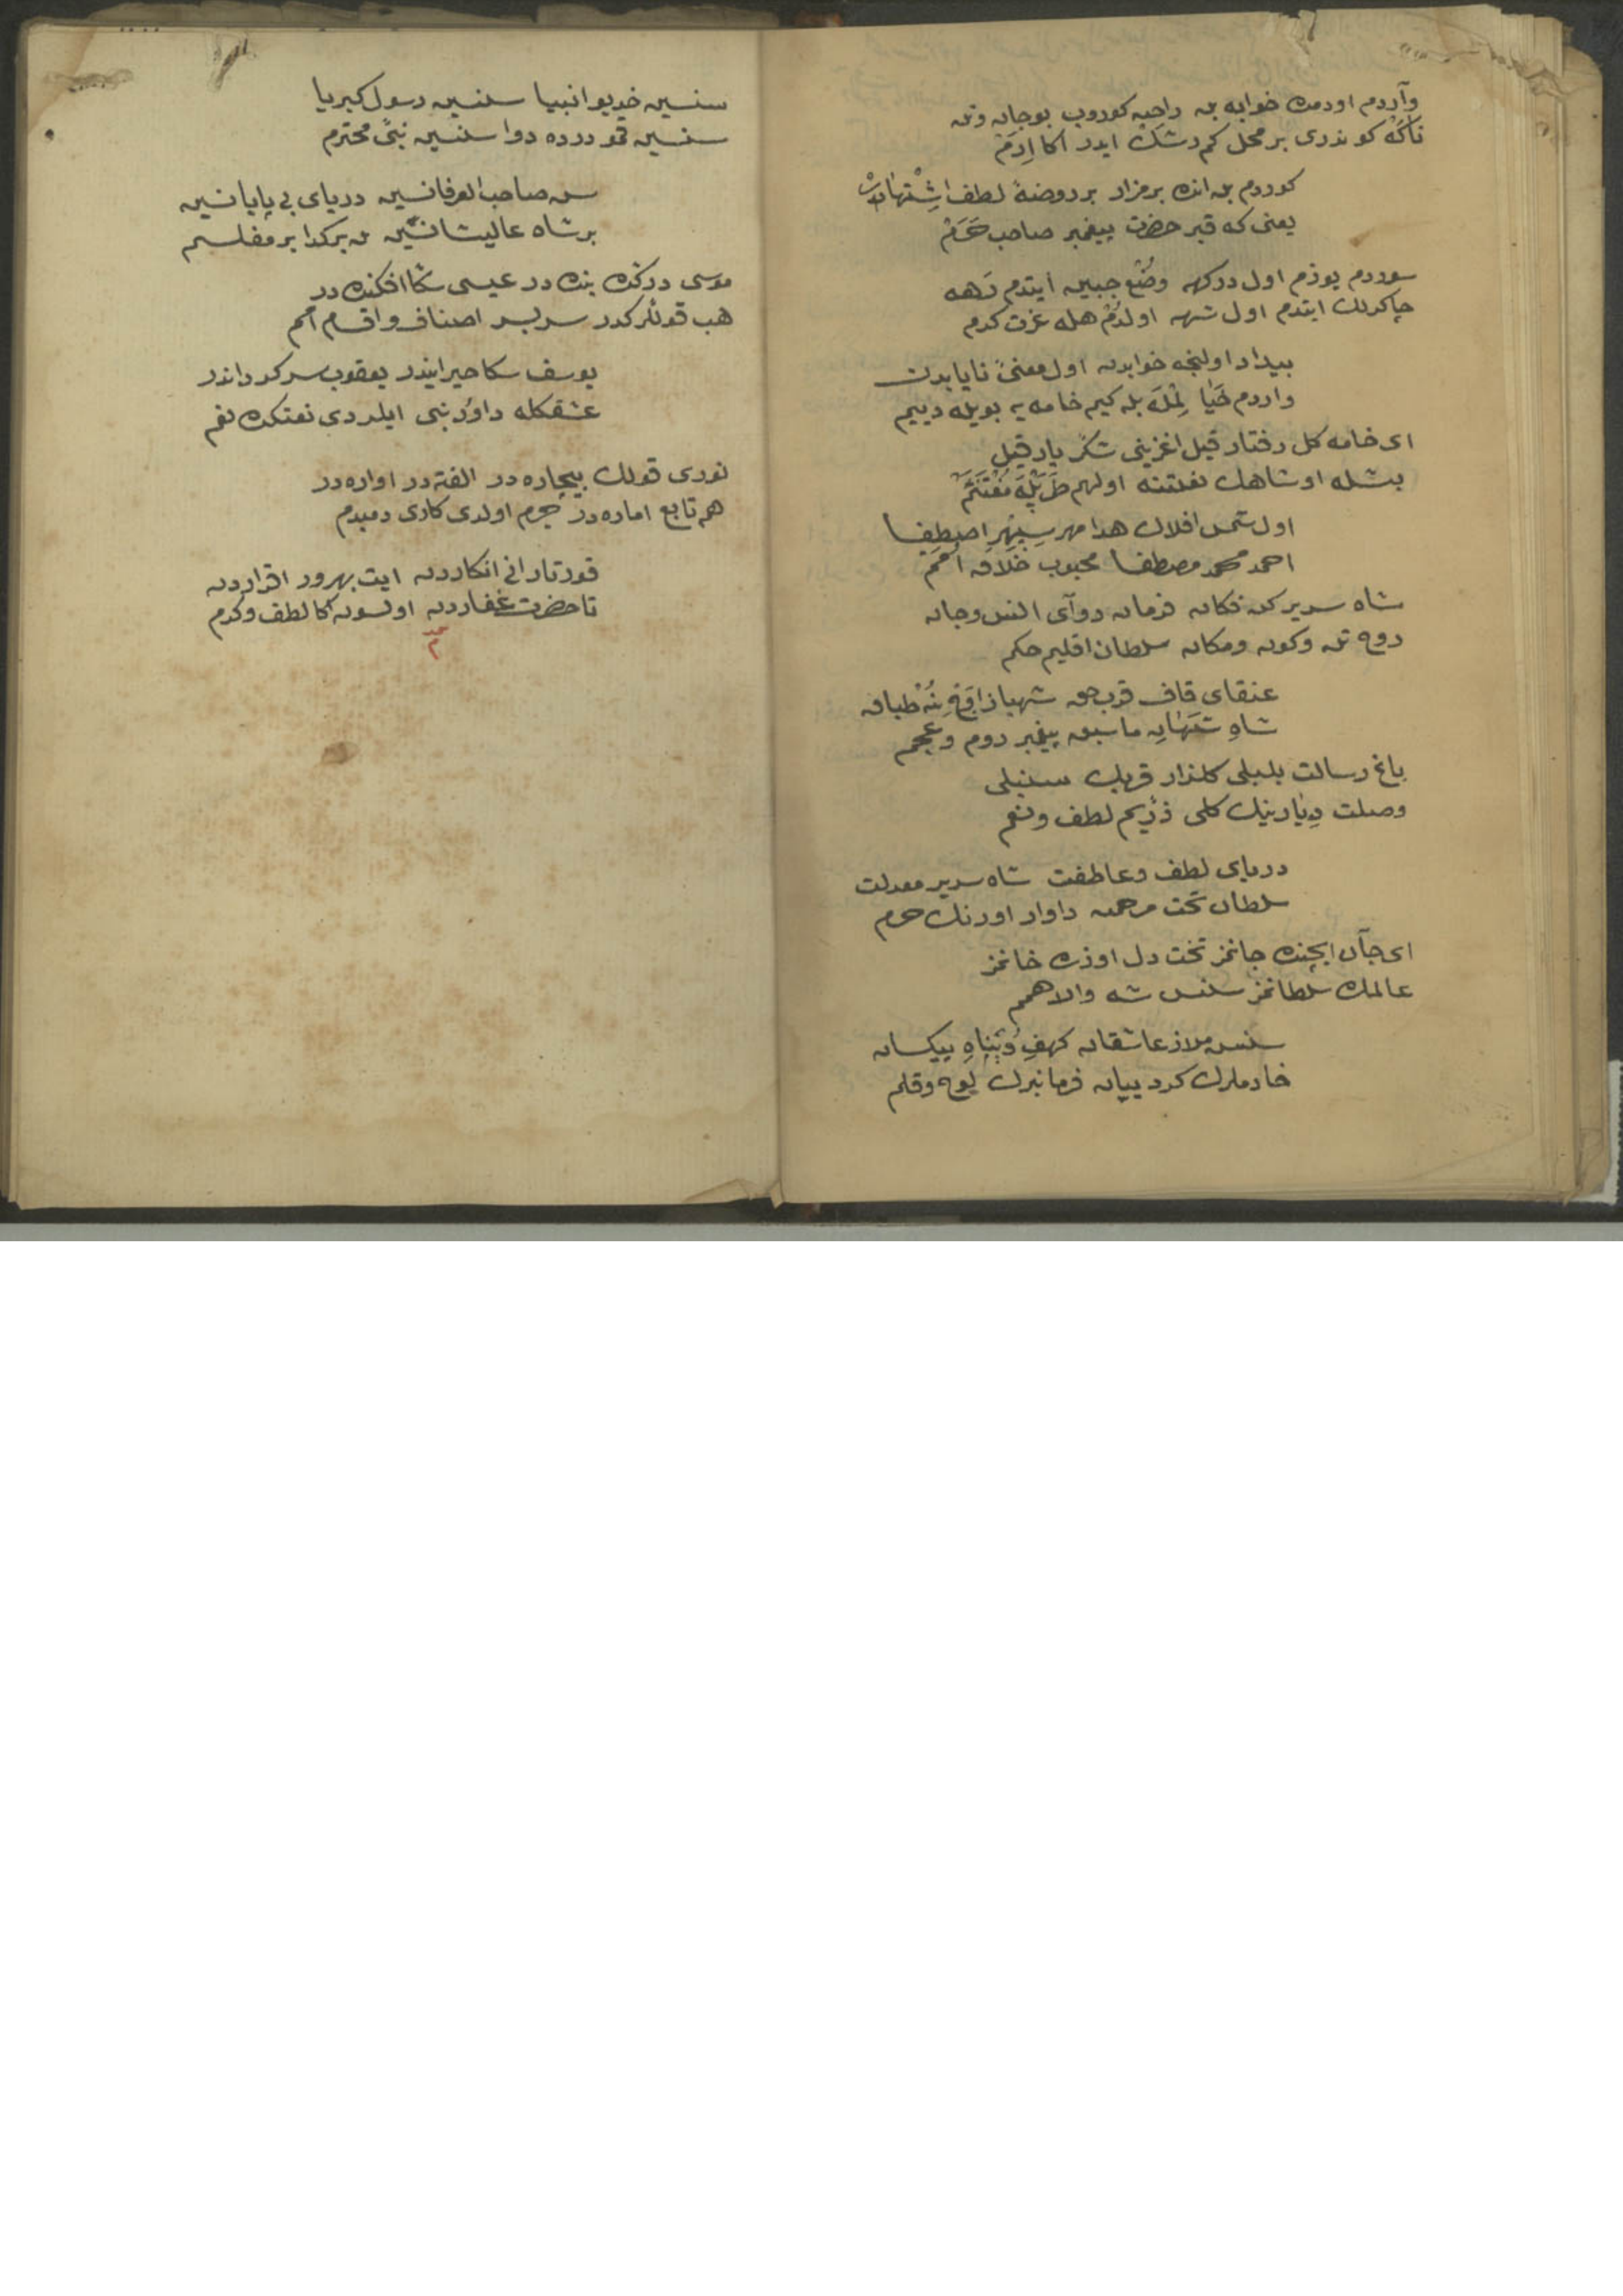 واردم اودمده خوابه بن راحبه كوروب بوجان وتن
ناكه كوندردى بر محل كم رشك ايدر اكا اِرَمْ
كوردم بن انده بر مزار بر روضهٔ لطف اِشْتِهَارْ
يعنى كه قبر حضرت پيغمبر صاحب حَرَمْ
سوردم يوزم اول دركهه وضع جبين ايتدم رَهه
چاكرلك ايتدم اول شهه اولدم هله عزت كدم
بيدار اولنجه خوابدن اول معنئ ناياب‌دن
واردم بله كيم خامه يه بويله دييم
اى خامه كل رفتار قيل اغزينى شكر بار قيل
بشله او شاهك نعتنه اولهم مُغْتَنَمْ
اول شمس افلاك هدا مهر سپهر اصطفا
احمد محمد مصطفا محبوب خلاق امم
شاه سرير كن فكان فرمان رواى انس وجان
روح تن وكون ومكان سلطان اقليم حكم
عنقاى قاف قرب حق شهباز اوج نُه طباق
شاهِ شهانِ ما سبق پيغمبر روم وعجم
باغ رسالت بلبلى كلزار قربك سنبلى
وصلت ديارينك كلى لطف ونعم
درياى لطف وعاطفت شاه سرير معدلت
سلطان تخت مرحمت داوار اورنك حرم
اى جان ايچنده جانمز تخت دل اوزره خانمز
عالمده سلطانمز سنسن شه والا همم
سنسن ملاذ عاشقان كهفِ وپناهِ بيكسان
خادملرك كروبيان فرمانبرك لوح وقلم
سنسين خديو انبيا سنسين رسول كبريا
سنسين قمو درده دوا سنسين نبئ محترم
سن صاحب العرفانسين درياى بى پايانسين
بر شاه عاليشانسين بن بر كدا بر مفلسم
موسى دركده بنده در عيسى سكا افكنده در
هب قوللركدر سربسر اصناف واقسام امم
يوسف سكا حيرانيدر يعقوب سركرداندر
عشقكله داود نبى ايلردى نعتكده نغم
نورى قولك بيچاره در الفته در اواره در
هم تابع اماره در جرم اولدى كارى دمبدم
قورتار انى انكاردن ايت بهره‌ور اقراردن
تا حضرت غفاردن اولسون اكا لطف وكرم